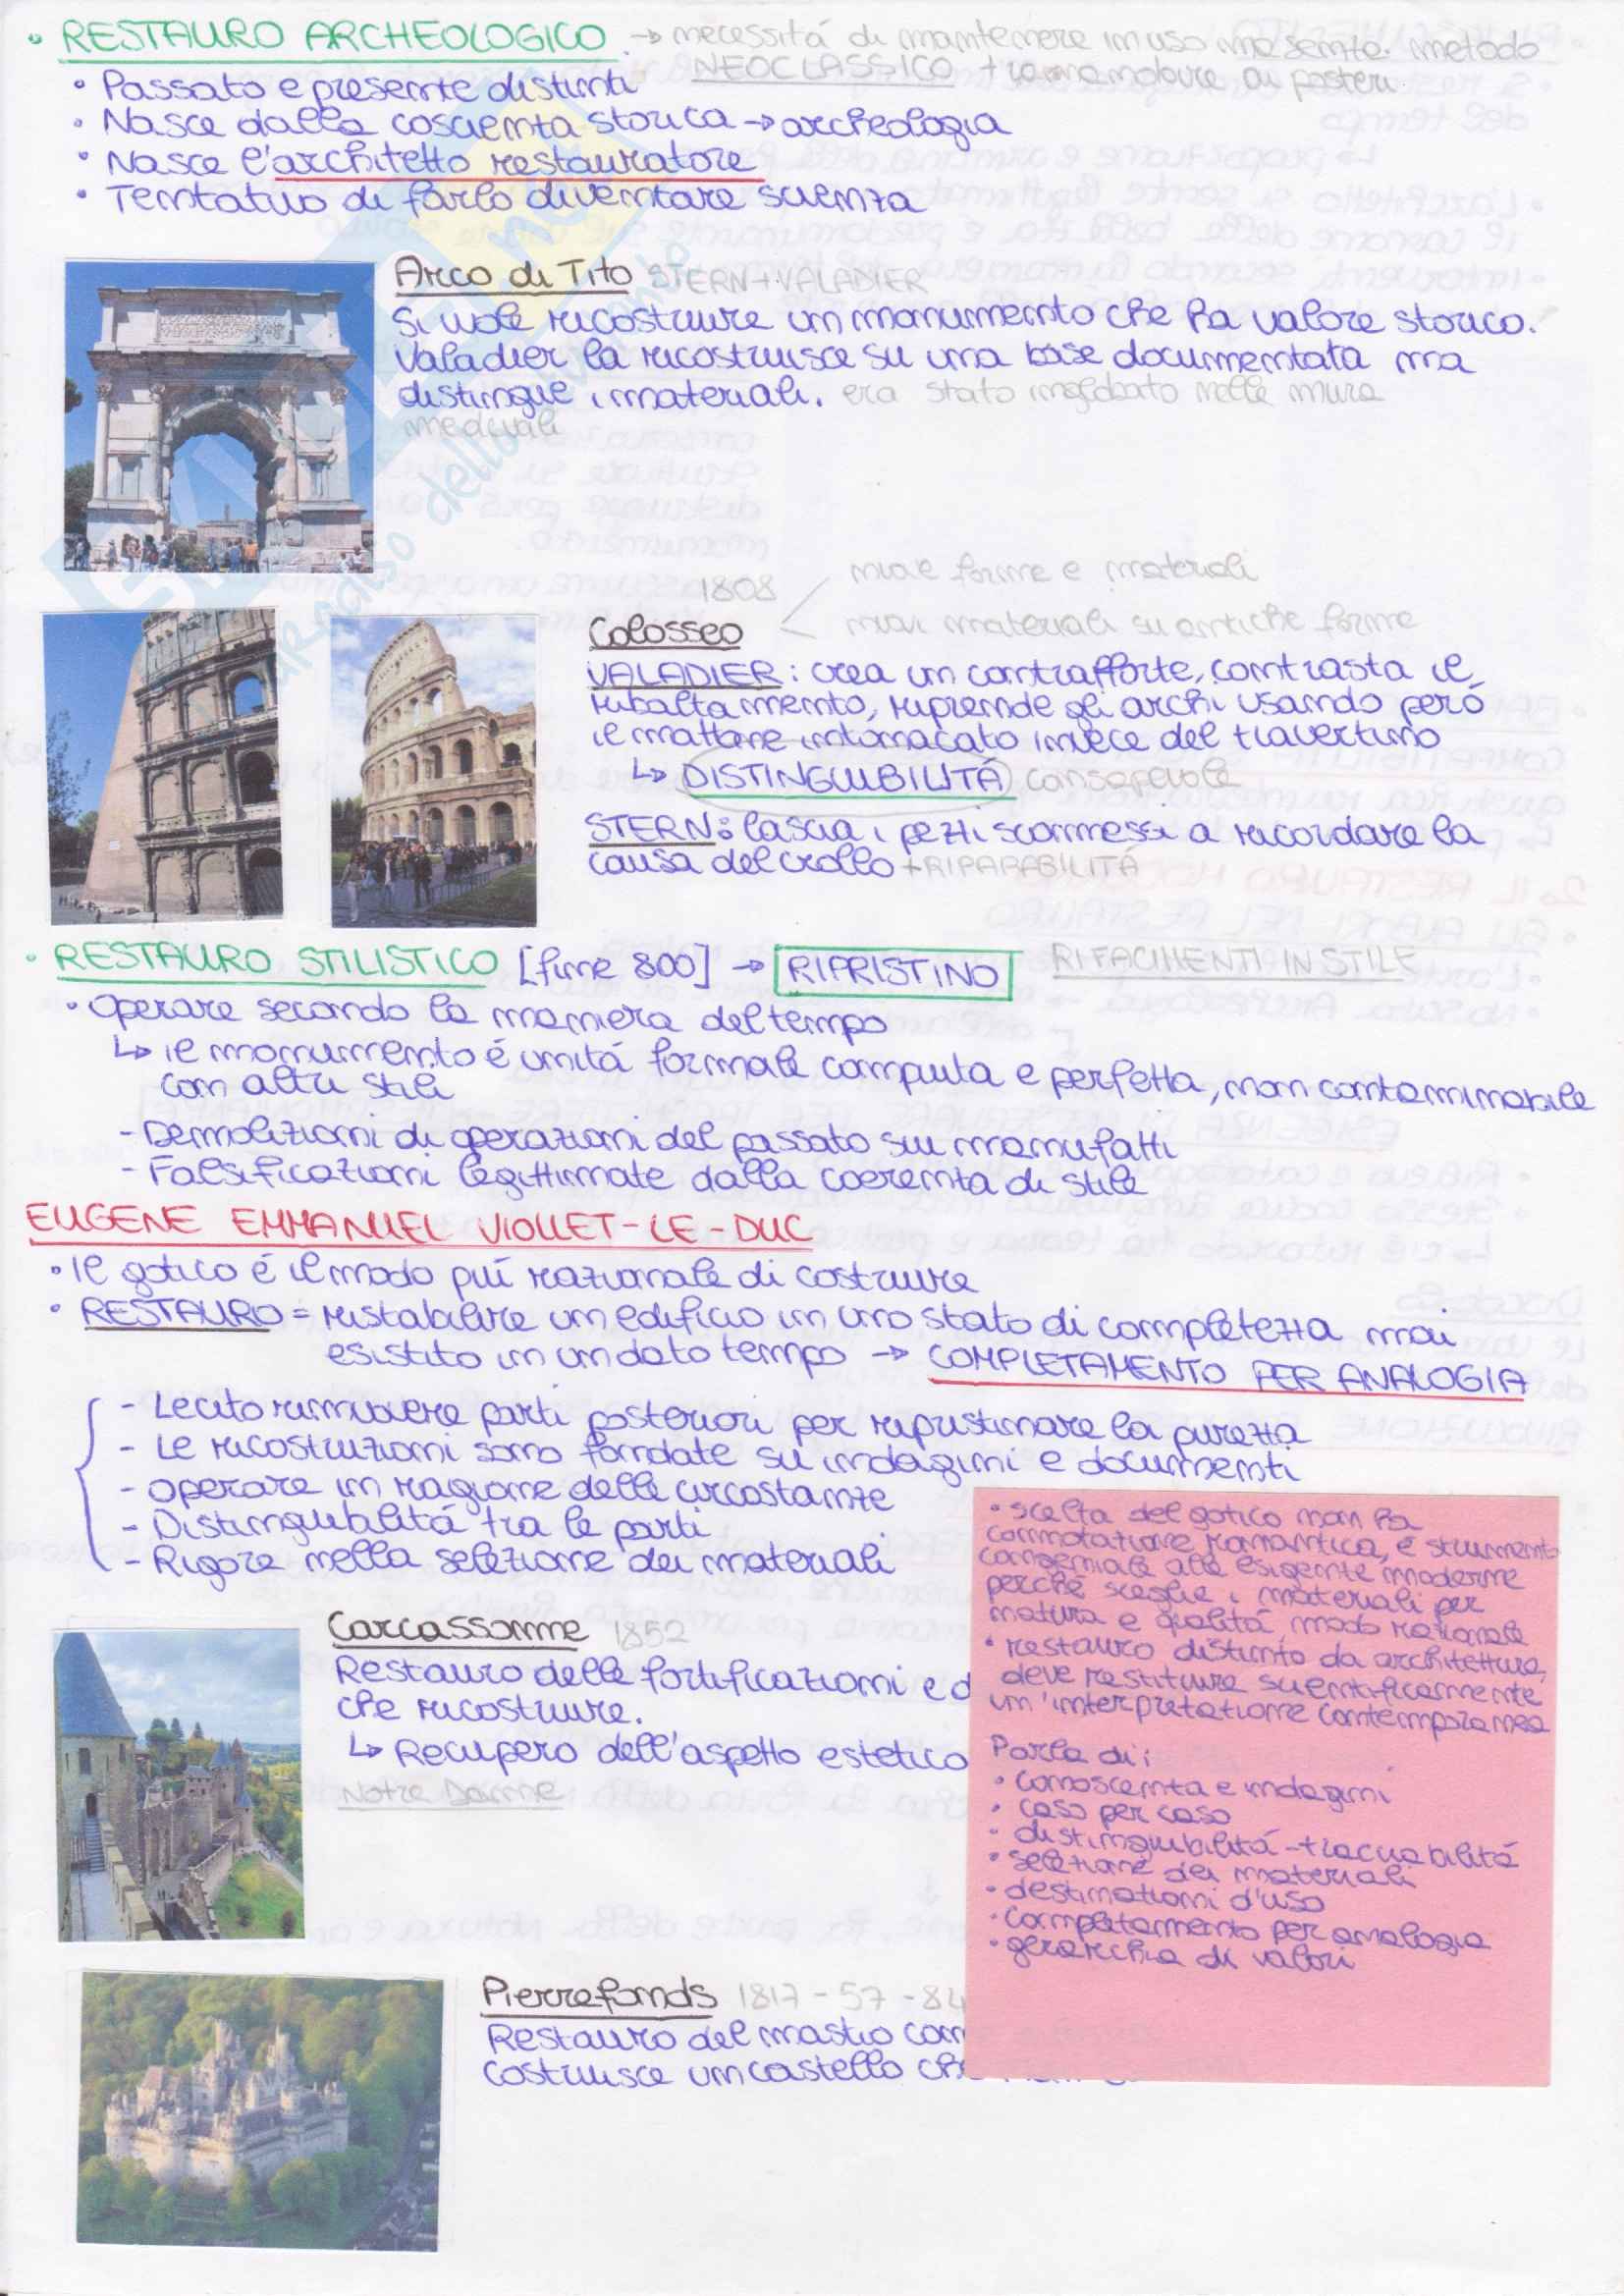 • RESTAURO ARCHEOLOGICO → necessitá di mantenere in uso ma sente metodo
NEOCLASSICO + tramandare ai posteri
• Passato e presente distinti
• Nasce dalla coscienza storica → archeologia
• Nasce l'architetto restauratore
• Tentativo di farlo diventare scienza
Arco di Tito STERN + VALADIER
Si vuole ricostruire un monumento che ha valore storico.
Valadier la ricostruisce su una base documentata ma
distingue i materiali. era stato inglobato nelle mura
medievali
1808
nuove forme e materiali
nuovi materiali su antiche forme
Colosseo
VALADIER: crea un contrafforte, contrasta il
ribaltamento, riprende gli archi usando peró
il mattone intonacato invece del travertino
↳ DISTINGUIBILITÁ consapevole
STERN: lascia i pezzi sconnessi a ricordare la
causa del crollo + RIPARABILITÁ
• RESTAURO STILISTICO [fine 800] → RIPRISTINO RIFACIMENTI IN STILE
• Operare secondo la maniera del tempo
↳ il monumento é unitá formale compiuta e perfetta, non contaminabile
con altri stili
- Demolizioni di operazioni del passato sui manufatti
- Falsificazioni legittimate dalla coerenza di stile
EUGENE EMMANUEL VIOLLET-LE-DUC
• Il gotico é il modo piú razionale di costruire
• RESTAURO = ristabilire un edificio in uno stato di completezza mai
esistito in un dato tempo → COMPLETAMENTO PER ANALOGIA
- Lecito rimuovere parti posteriori per ripristinare la purezza
- Le ricostruzioni sono fondate su indagini e documenti
- Operare in ragione delle circostanze
- Distinguibilitá tra le parti
- Rigore nella selezione dei materiali
Carcassonne 1852
Restauro delle fortificazioni e d
che ricostruire.
↳ Recupero dell'aspetto estetico
Notre Dame
Pierrefonds 1817 - 57 - 84
Restauro del mastio com
Costruisce un castello che
• scelta del gotico non ha
connotazione romantica, é strumento
congeniale alle esigenze moderne
perché sceglie i materiali per
natura e qualitá, modo razionale
• restauro distinto da architettura,
deve restituire scientificamente
un'interpretazione contemporanea
Parla di:
• conoscenza e indagini
• caso per caso
• distinguibilitá - tracciabilitá
• selezione dei materiali
• destinazioni d'uso
• completamento per analogia
• gerarchia di valori